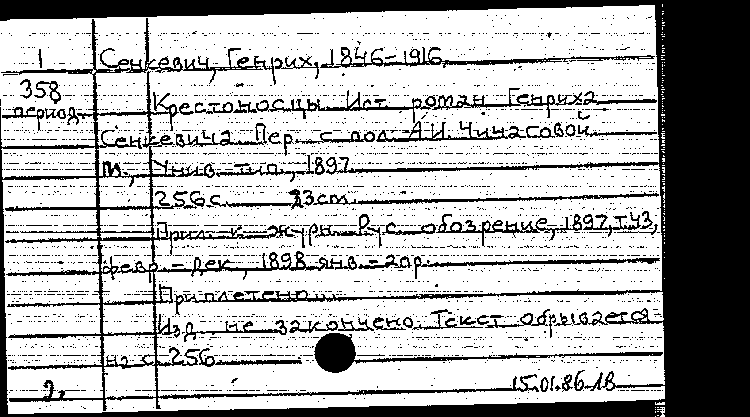 1 Сенкевич, Генрих, 1846-1916.
358
период.
Крестоносцы Ист. роман Генриха
Сенкевича Пер. с пол. А.И. Чичаговой
М., Унив. тип., 1897
256 с. 23 cm.
Прил. к журн. Рус. обозрение, 1897, Т.43,
февр.-дек., 1898 янв.-апр.
Приплетено...
Изд. не закончено. Текст обрывается
на с. 256
15.01.86